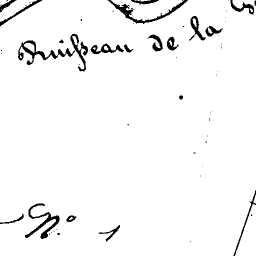 Ruisseau de la
N.º 1